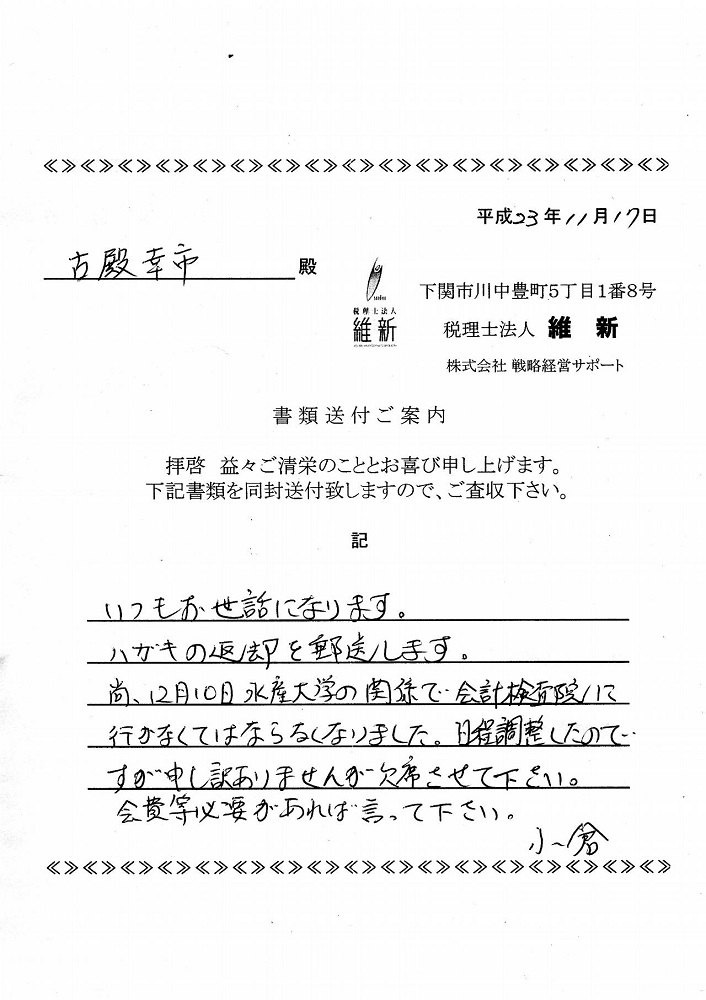 ≪≫≪≫≪≫≪≫≪≫≪≫≪≫≪≫≪≫≪≫≪≫≪≫≪≫≪≫≪≫≪≫≪≫≪≫
平成23年11月17日
古殿幸市 殿
下関市川中豊町5丁目1番8号
税理士法人 維新
税理士法人 維 新
株式会社 戦略経営サポート
書類送付ご案内
拝啓 益々ご清栄のこととお喜び申し上げます。
下記書類を同封送付致しますので、ご査収下さい。
記
いつもお世話になります。
ハガキの返却を郵送します。
尚、12月10日水産大学の関係で会計検査院に
行かなくてはならなくなりました。日程調整したので
すが申し訳ありませんが欠席させて下さい。
会費等必要があれば言って下さい。
小倉
≪≫≪≫≪≫≪≫≪≫≪≫≪≫≪≫≪≫≪≫≪≫≪≫≪≫≪≫≪≫≪≫≪≫≪≫